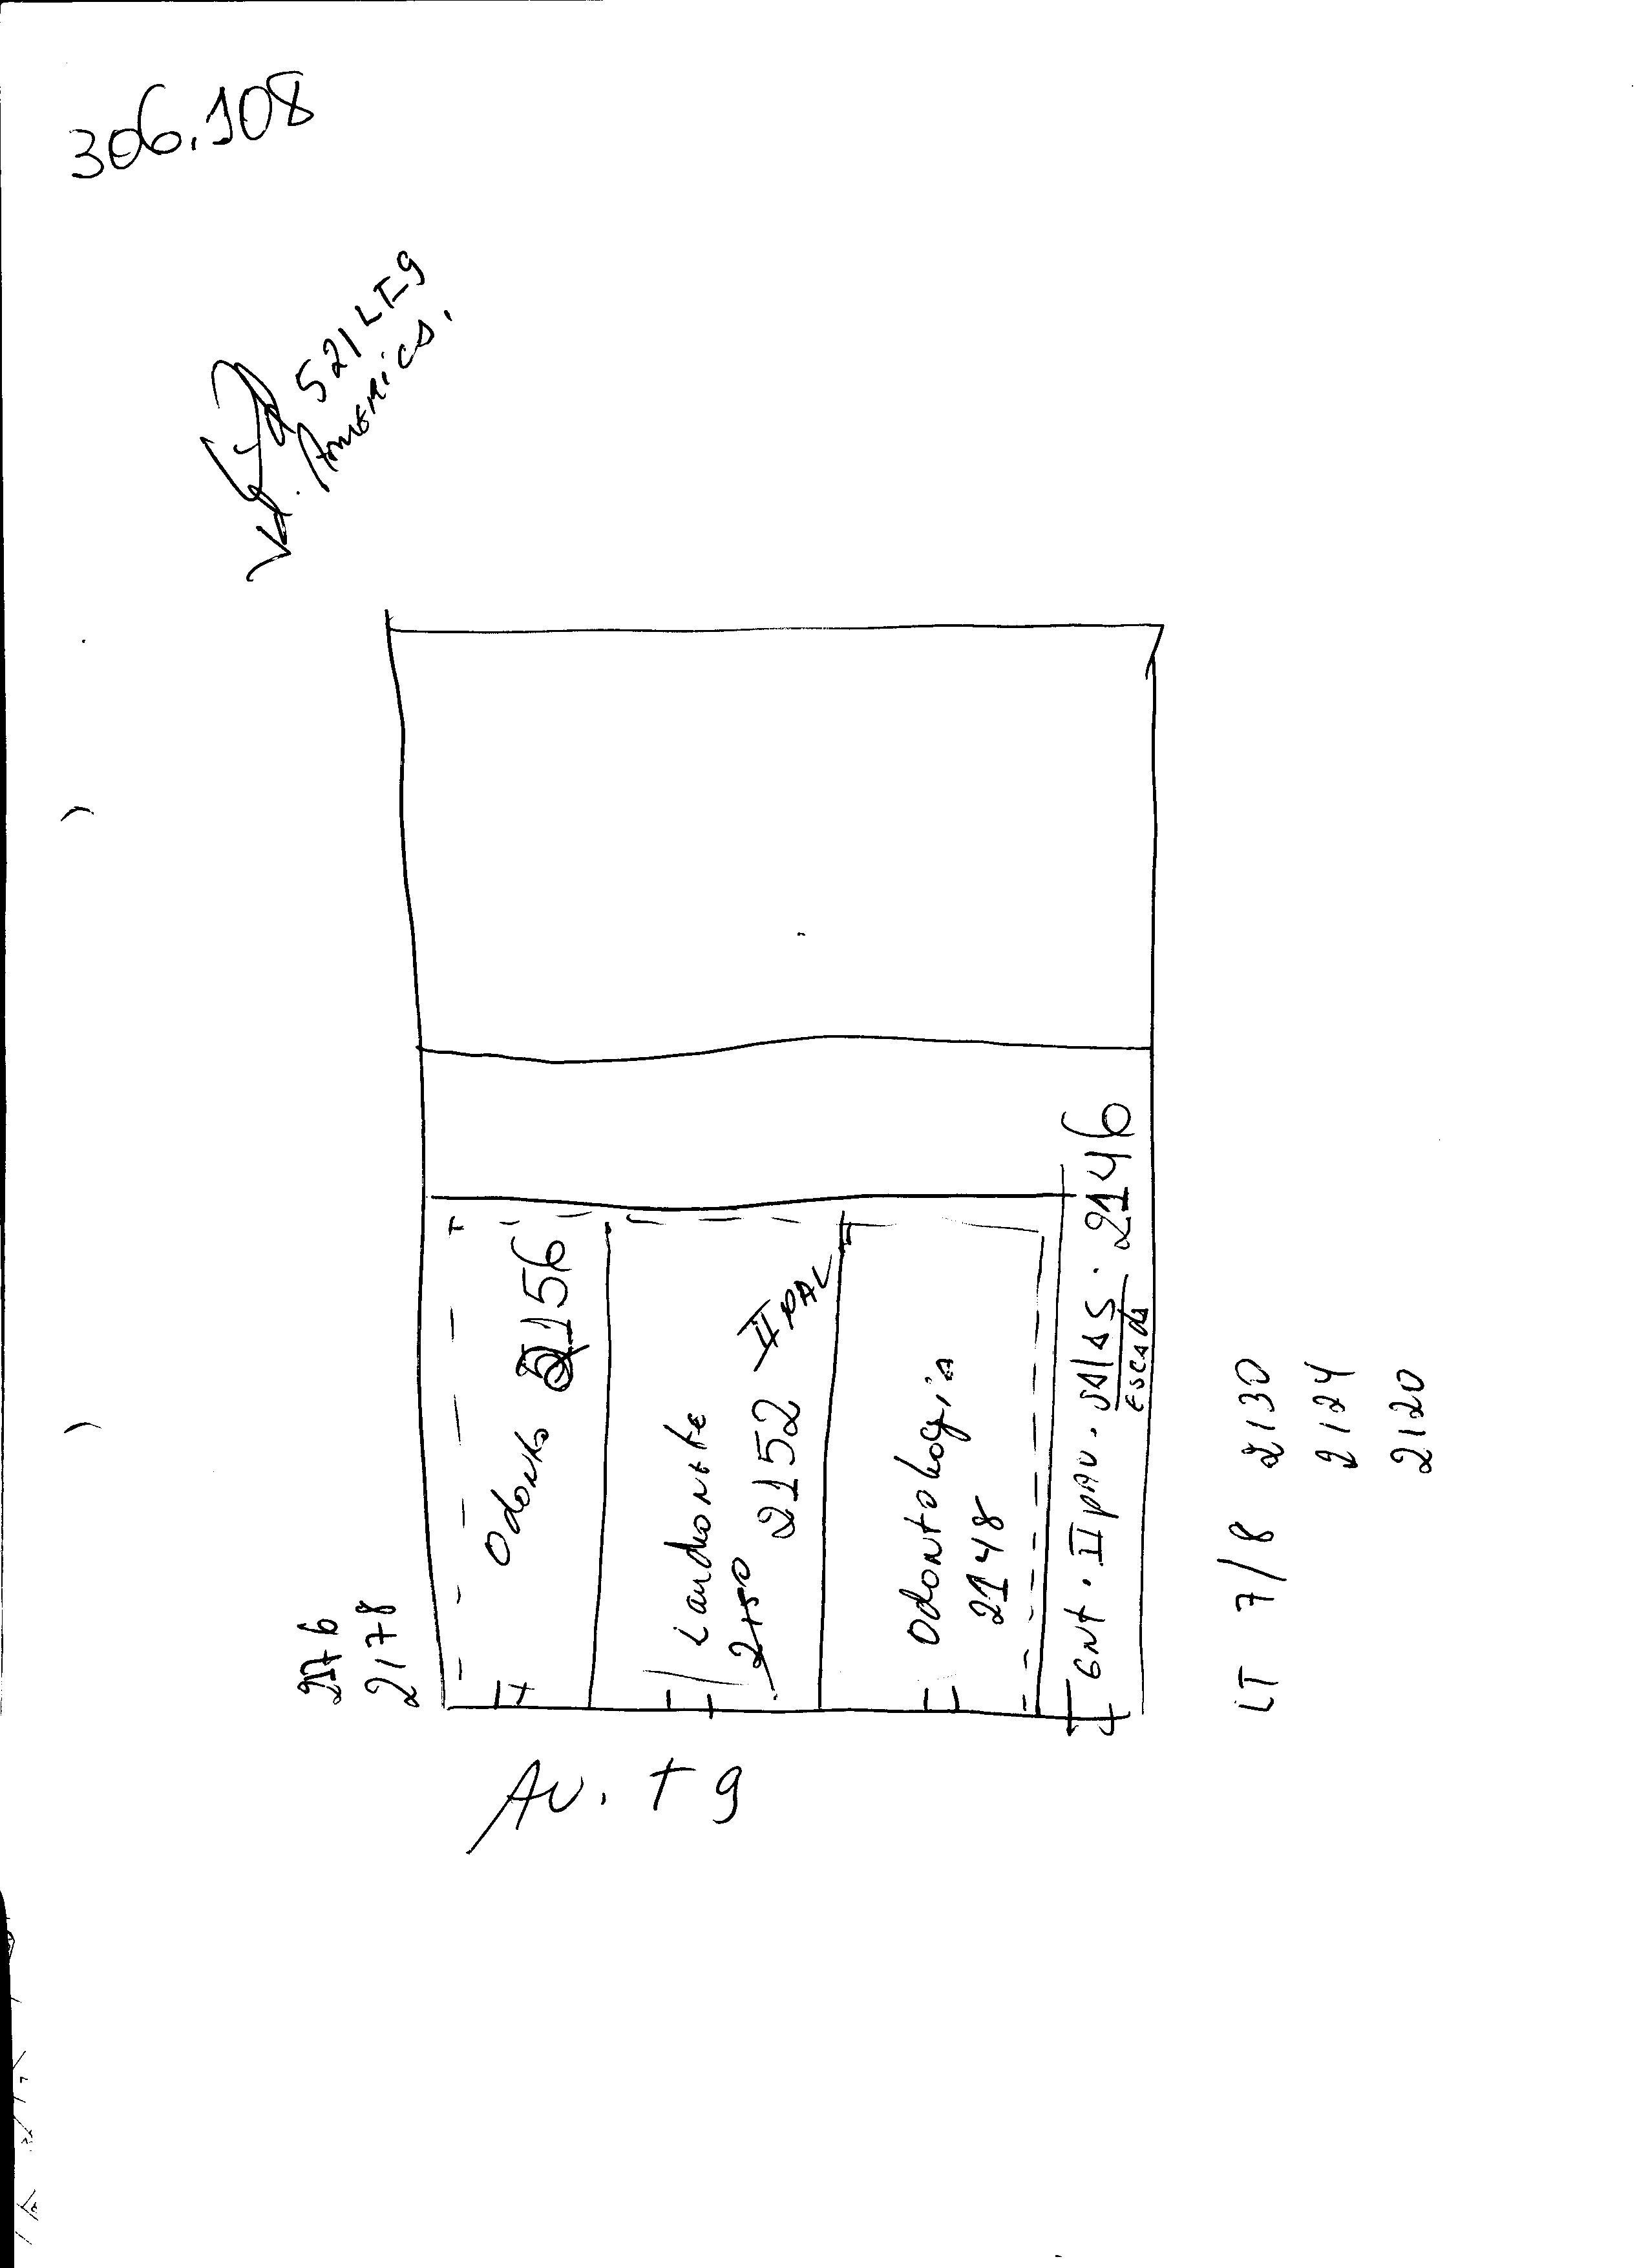 306.108
521 LT-9
Vd. América.
2176
2178
Odonto 2156
2150
2152 II PAV
Odontologia
2148
Ent. II pav. salas. 2146
Escada
LT 7/8 2130
2124
2120
Av. T 9